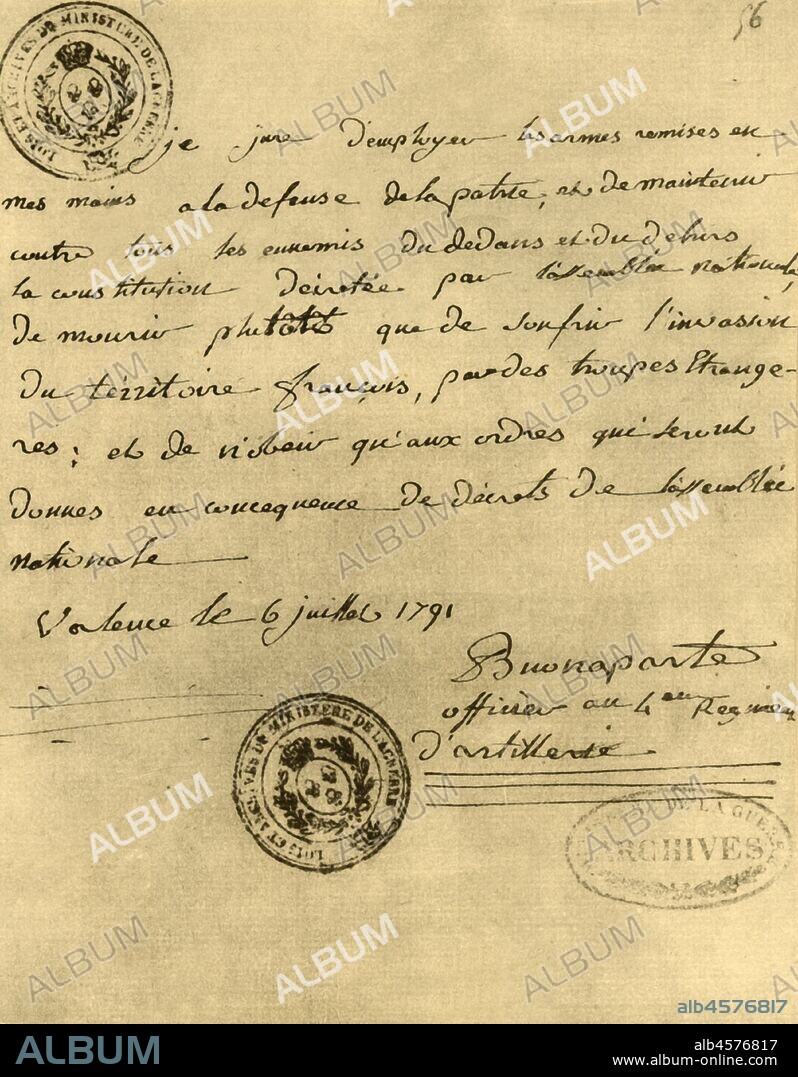 56
LOIS ET ARCHIVES DU MINISTERE DE LA GUERRE
je jure d'employer les armes remises en
mes mains a la defense de la patrie, et de maintenir
contre tous les ennemis du dedans et du dehors
la constitution décretée par l'assemblée nationale,
de mourir plutôt que de soufrir l'invasion
du térritoire françois, par des troupes Etrange-
res; et de n'obeir qu'aux ordres qui seront
donnes en concequence de décrets de l'assemblée
nationale
Valence le 6 juillet 1791
Buonaparte
officier au 4eme Regimen
d'artillerie
LOIS ET ARCHIVES DU MINISTERE DE LA GUERRE
DE LA GUERRE
ARCHIVES
ALBUM
alb4576817
ALBUM
alb4576817
www.album-online.com